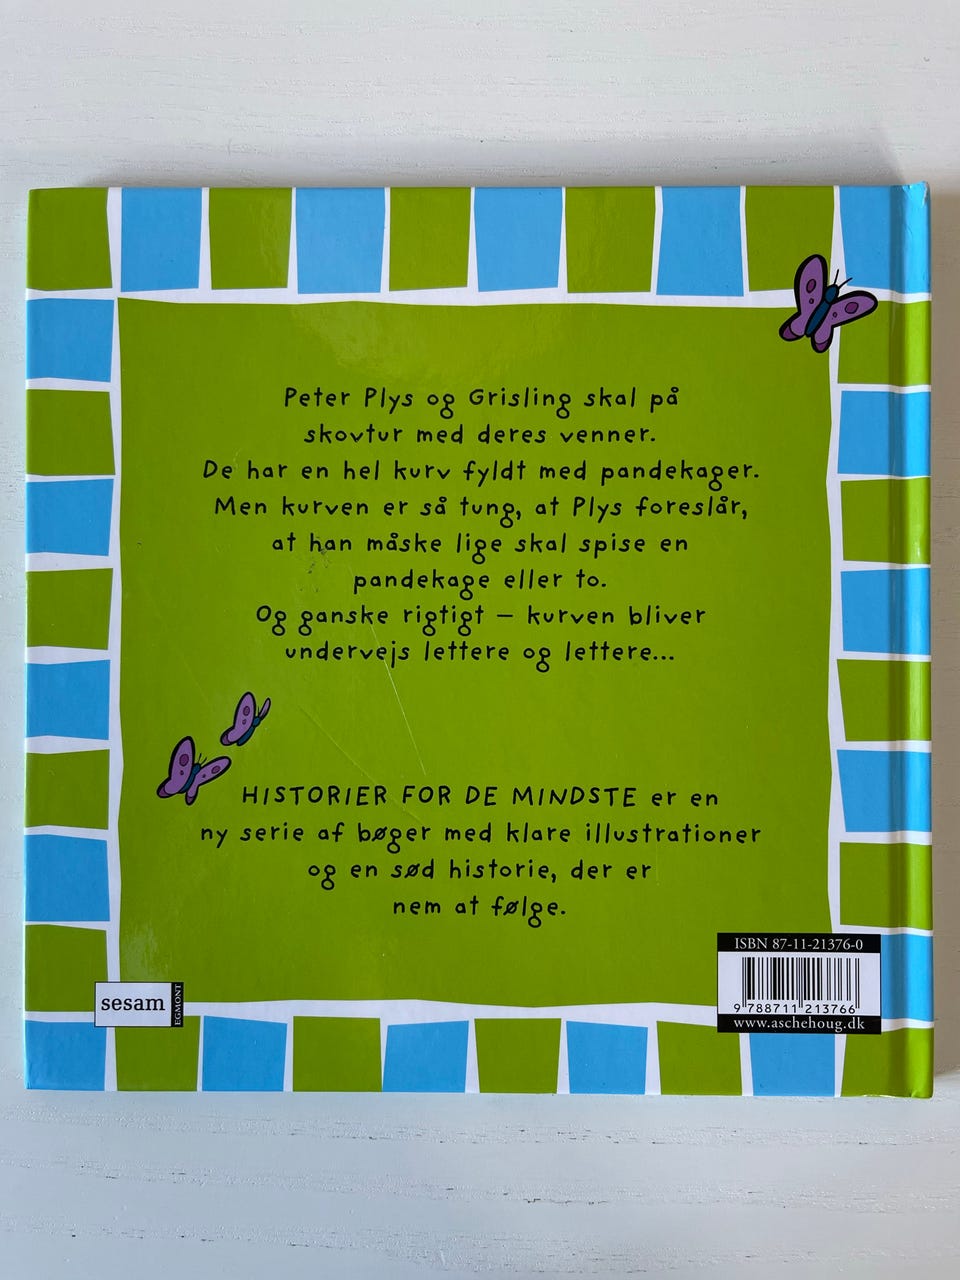 Peter Plys og Grisling skal på
skovtur med deres venner.
De har en hel kurv fyldt med pandekager.
Men kurven er så tung, at Plys foreslår,
at han måske lige skal spise en
pandekage eller to.
Og ganske rigtigt – kurven bliver
undervejs lettere og lettere...
HISTORIER FOR DE MINDSTE er en
ny serie af bøger med klare illustrationer
og en sød historie, der er
nem at følge.
sesam
EGMONT
ISBN 87-11-21376-0
9 788711 213766
www.aschehoug.dk